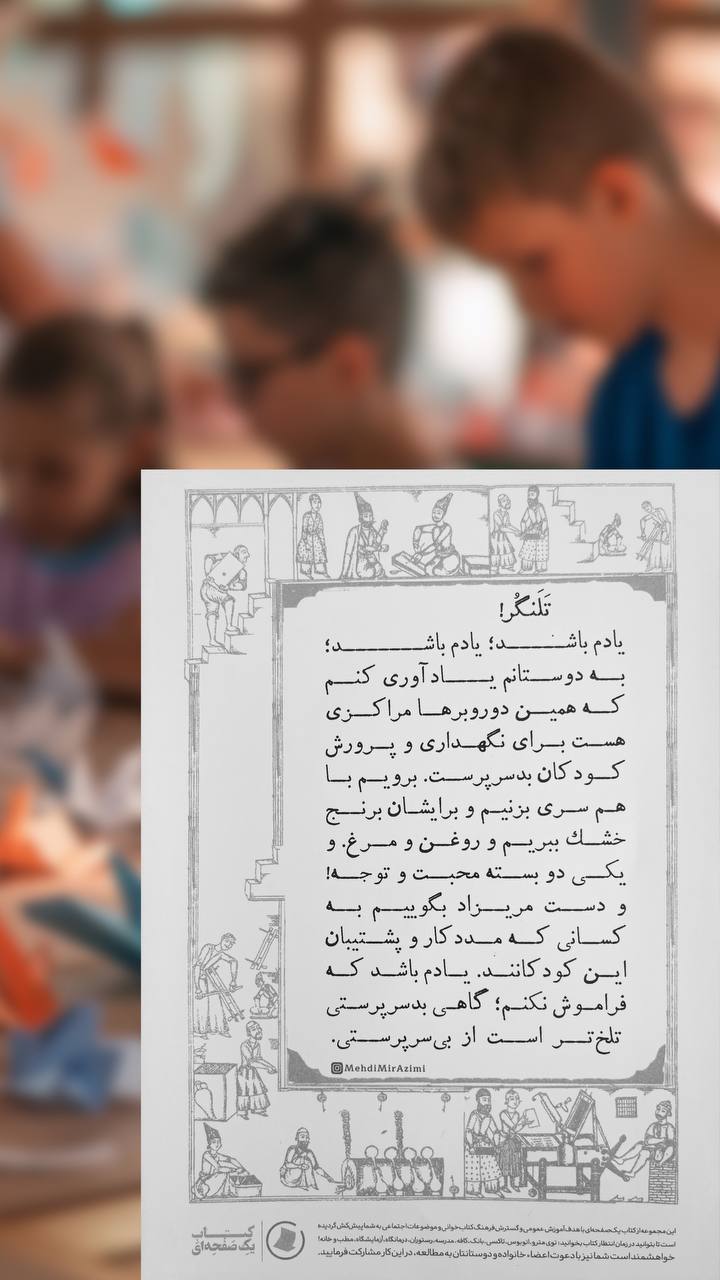 تَلَنگُر!
یادم باشد؛ یادم باشد؛
به دوستانم یادآوری کنم
که همین دوروبرها مراکزی
هست برای نگهداری و پرورش
کودکان بدسرپرست. برویم با
هم سری بزنیم و برایشان برنج
خشك ببریم و روغن و مرغ. و
یکی دو بسته محبت و توجه!
و دست مریزاد بگوییم به
کسانی که مددکار و پشتیبان
این کودکانند. یادم باشد که
فراموش نکنم؛ گاهی بدسرپرستی
تلخ‌تر است از بی‌سرپرستی.
MehdiMirAzimi
این مجموعه از کتاب یک‌صفحه‌ای با هدف آموزش عمومی و گسترش فرهنگ کتاب‌خوانی و موضوعات اجتماعی به شما پیش‌کش گردیده
است تا بتوانید در زمان انتظار کتاب بخوانید؛ توی مترو، اتوبوس، تاکسی، بانک، کافه، مدرسه، رستوران، درمانگاه، آزمایشگاه، مطب و خانه!
خواهشمند است شما نیز با دعوت اعضاء خانواده و دوستانتان به مطالعه، در این کار مشارکت فرمایید.
کتاب
یک صفحه‌ای